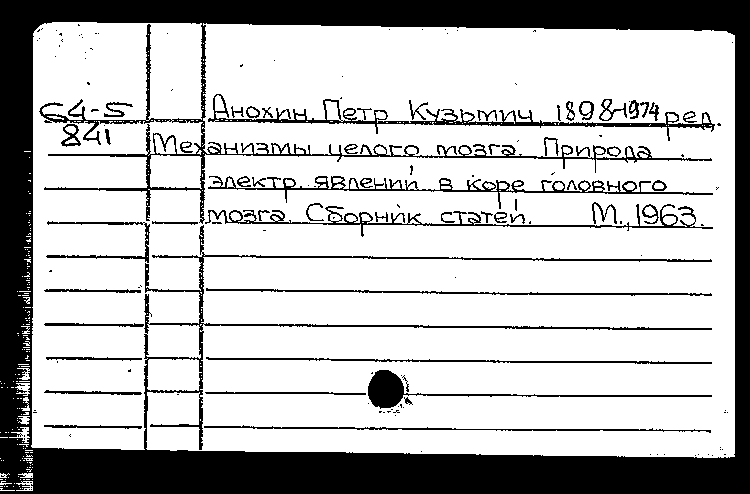 64-5 Анохин, Петр Кузьмич, 1898-1974 ред.
841 Механизмы целого мозга. Природа
электр. явлений в коре головного
мозга. Сборник статей. М., 1963.